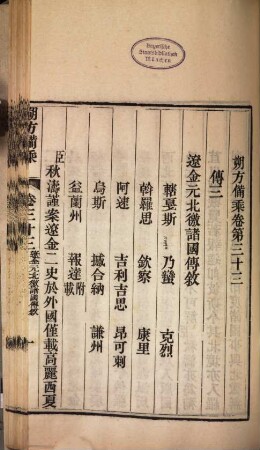 Bayerische
Staatsbibliothek
München
朔方備乘卷第三十三
傳三
遼金元北徼諸國傳敘
轄戛斯 乃蠻 克烈
斡羅思 欽察 康里
阿速 吉利吉思 昂可剌
烏斯 撼合納 謙州
益蘭州 報達附載
臣秋濤謹案遼金二史於外國僅載高麗西夏
朔方備乘 卷三十三 遼金元北徼諸國傳敘 一